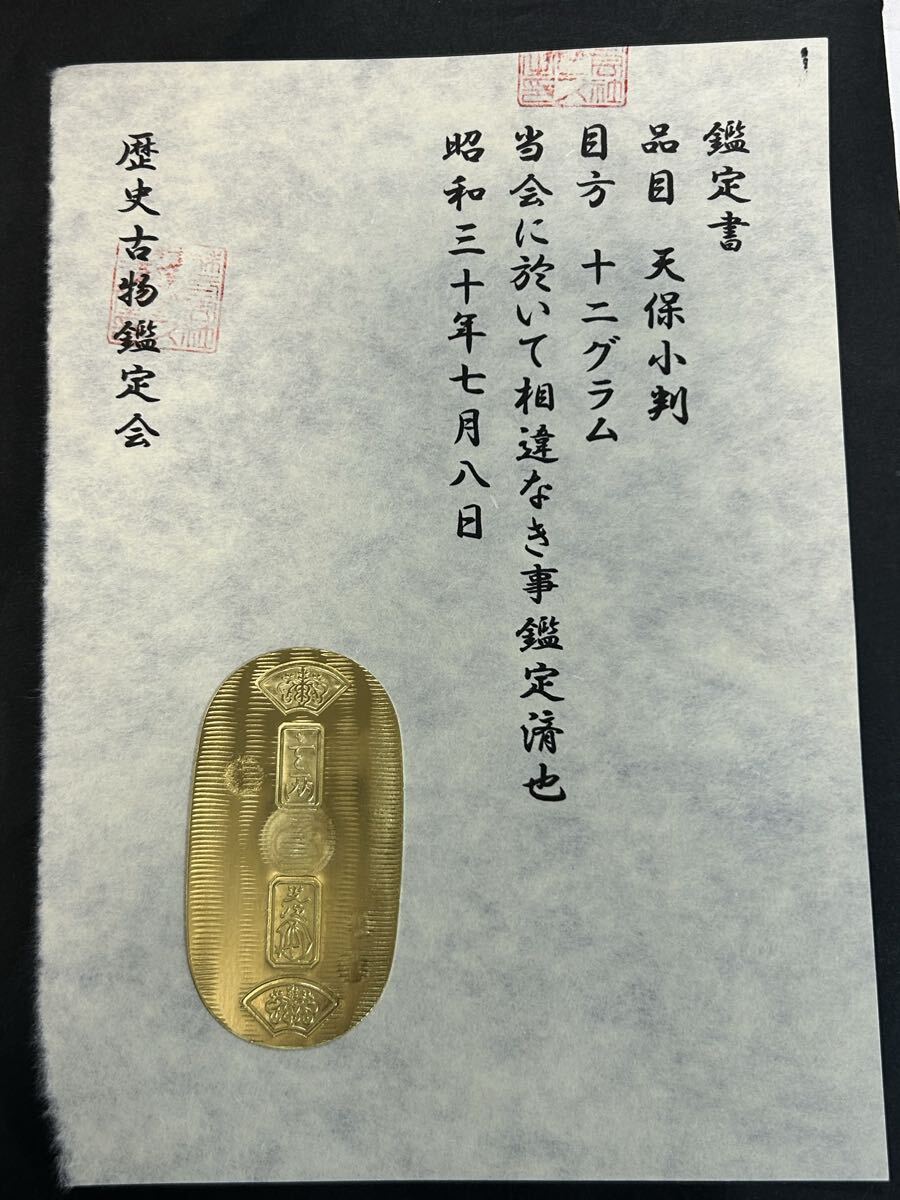 鑑定書
品目 天保小判
目方 十二グラム
当会に於いて相違なき事鑑定済也
昭和三十年七月八日
歴史古物鑑定会